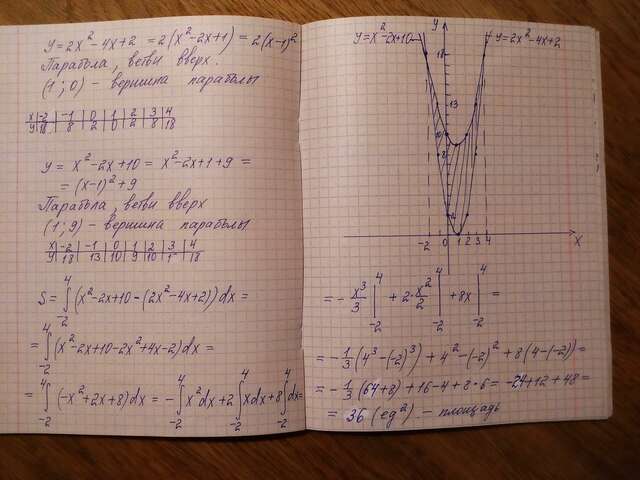 y = 2x² - 4x + 2 = 2(x² - 2x + 1) = 2(x-1)²
Парабола, ветви вверх.
(1; 0) - вершина параболы
x | -2 | -1 | 0 | 1 | 2 | 3 | 4
y | 18 | 8 | 2 | 0 | 2 | 8 | 18
y = x² - 2x + 10 = x² - 2x + 1 + 9 =
= (x-1)² + 9
Парабола, ветви вверх
(1; 9) - вершина параболы
x | -2 | -1 | 0 | 1 | 2 | 3 | 4
y | 18 | 13 | 10 | 9 | 10 | 1 | 18
S = ∫₋₂⁴ (x² - 2x + 10 - (2x² - 4x + 2)) dx =
= ∫₋₂⁴ (x² - 2x + 10 - 2x² + 4x - 2) dx =
= ∫₋₂⁴ (-x² + 2x + 8) dx = - ∫₋₂⁴ x² dx + 2 ∫₋₂⁴ x dx + 8 ∫₋₂⁴ dx =
y = x² - 2x + 10
y
y = 2x² - 4x + 2
18
13
10
8
2
-2 0 1 2 3 4 x
= - x³/3 |₋₂⁴ + 2 · x²/2 |₋₂⁴ + 8x |₋₂⁴ =
= - 1/3 (4³ - (-2)³) + 4² - (-2)² + 8(4 - (-2)) =
= - 1/3 (64 + 8) + 16 - 4 + 8 · 6 = -24 + 12 + 48 =
= 36 (ед²) - площадь